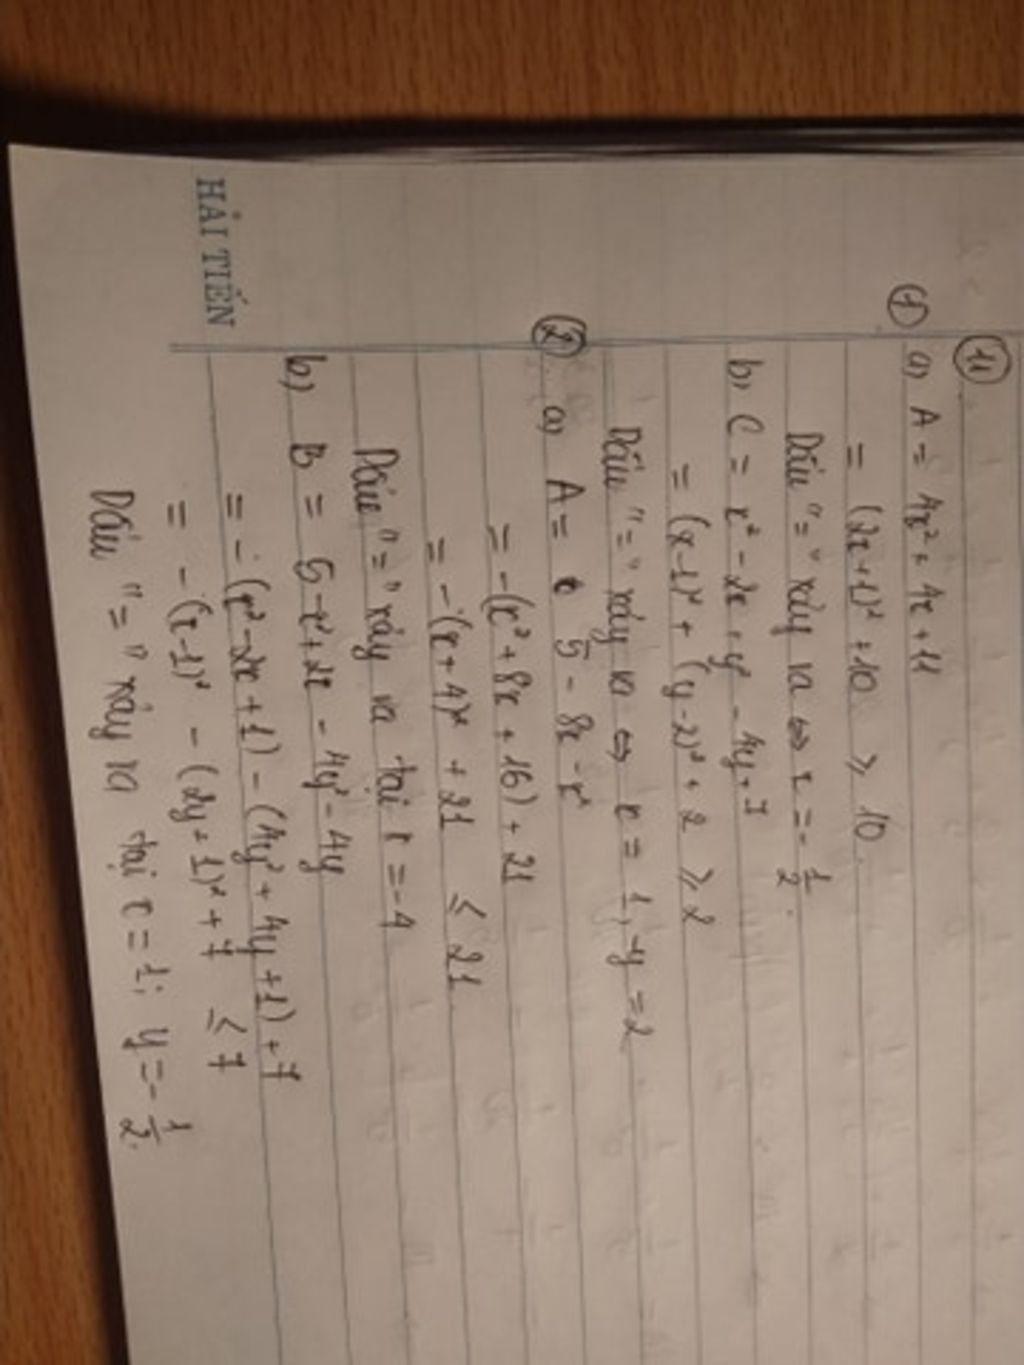 11
① a) A = 4x² + 4x + 11
= (2x+1)² + 10 ⩾ 10.
Dấu "=" xảy ra ⇔ x = -1/2.
b, C = x² - 2x + y² - 4y + 7
= (x-1)² + (y-2)² + 2 ⩾ 2
Dấu "=" xảy ra ⇔ x = 1, y = 2
② a) A = 5 - 8x - x²
= -(x² + 8x + 16) + 21
= -(x+4)² + 21 ≤ 21
Dấu "=" xảy ra tại x = -4
b) B = 5 - x² + 2x - 4y² - 4y
= -(x² - 2x + 1) - (4y² + 4y + 1) + 7
= -(x-1)² - (2y+1)² + 7 ≤ 7
Dấu "=" xảy ra tại x = 1; y = -1/2.
HẢI TIẾN